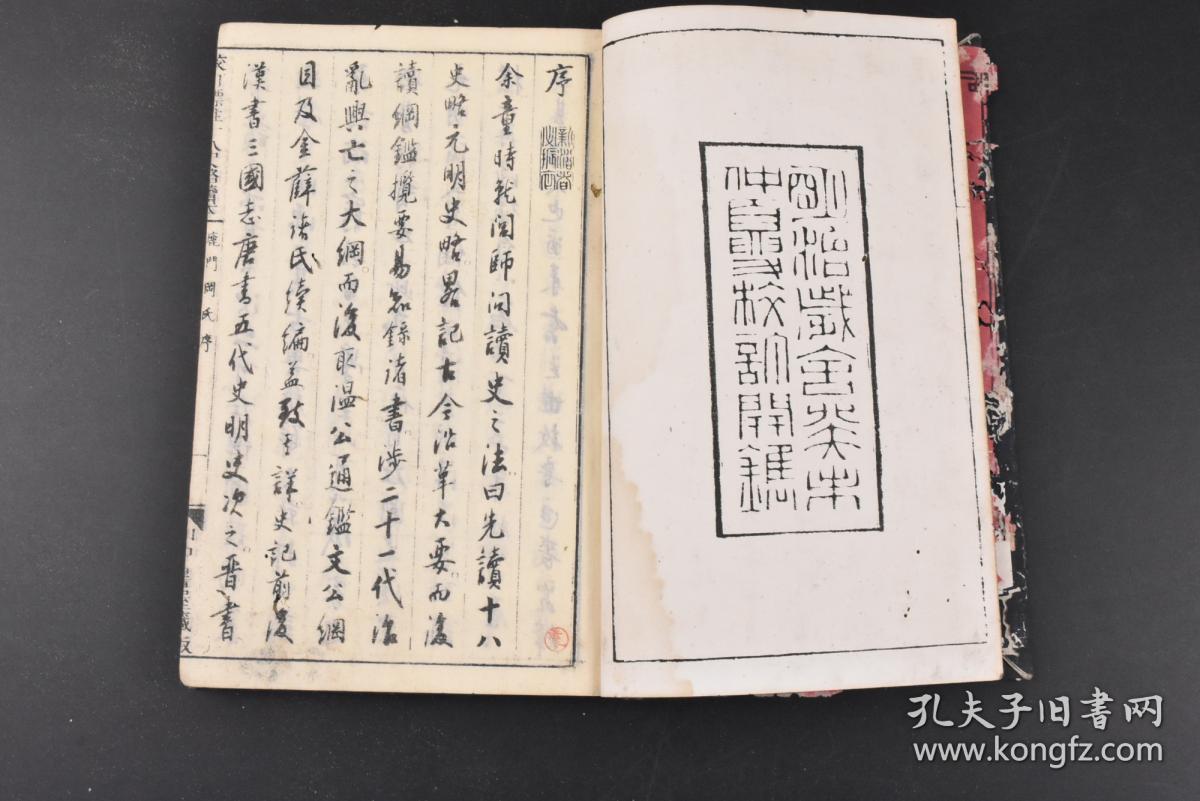 明治歲舍癸未
仲夏校訂開鐫
序
余童時就関師问讀史之法曰先讀十八
史略元明史略畧記古今沿革大要而後
讀綱鑑攬要易知錄諸書涉二十一代治
亂興亡之大綱而後取溫公通鑑文公綱
目及金薛諸氏續編益致其詳史記前後
漢書三國志唐書五代史明史次之晉書
鹿門岡氏序
藏版
孔夫子旧书网
www.kongfz.com